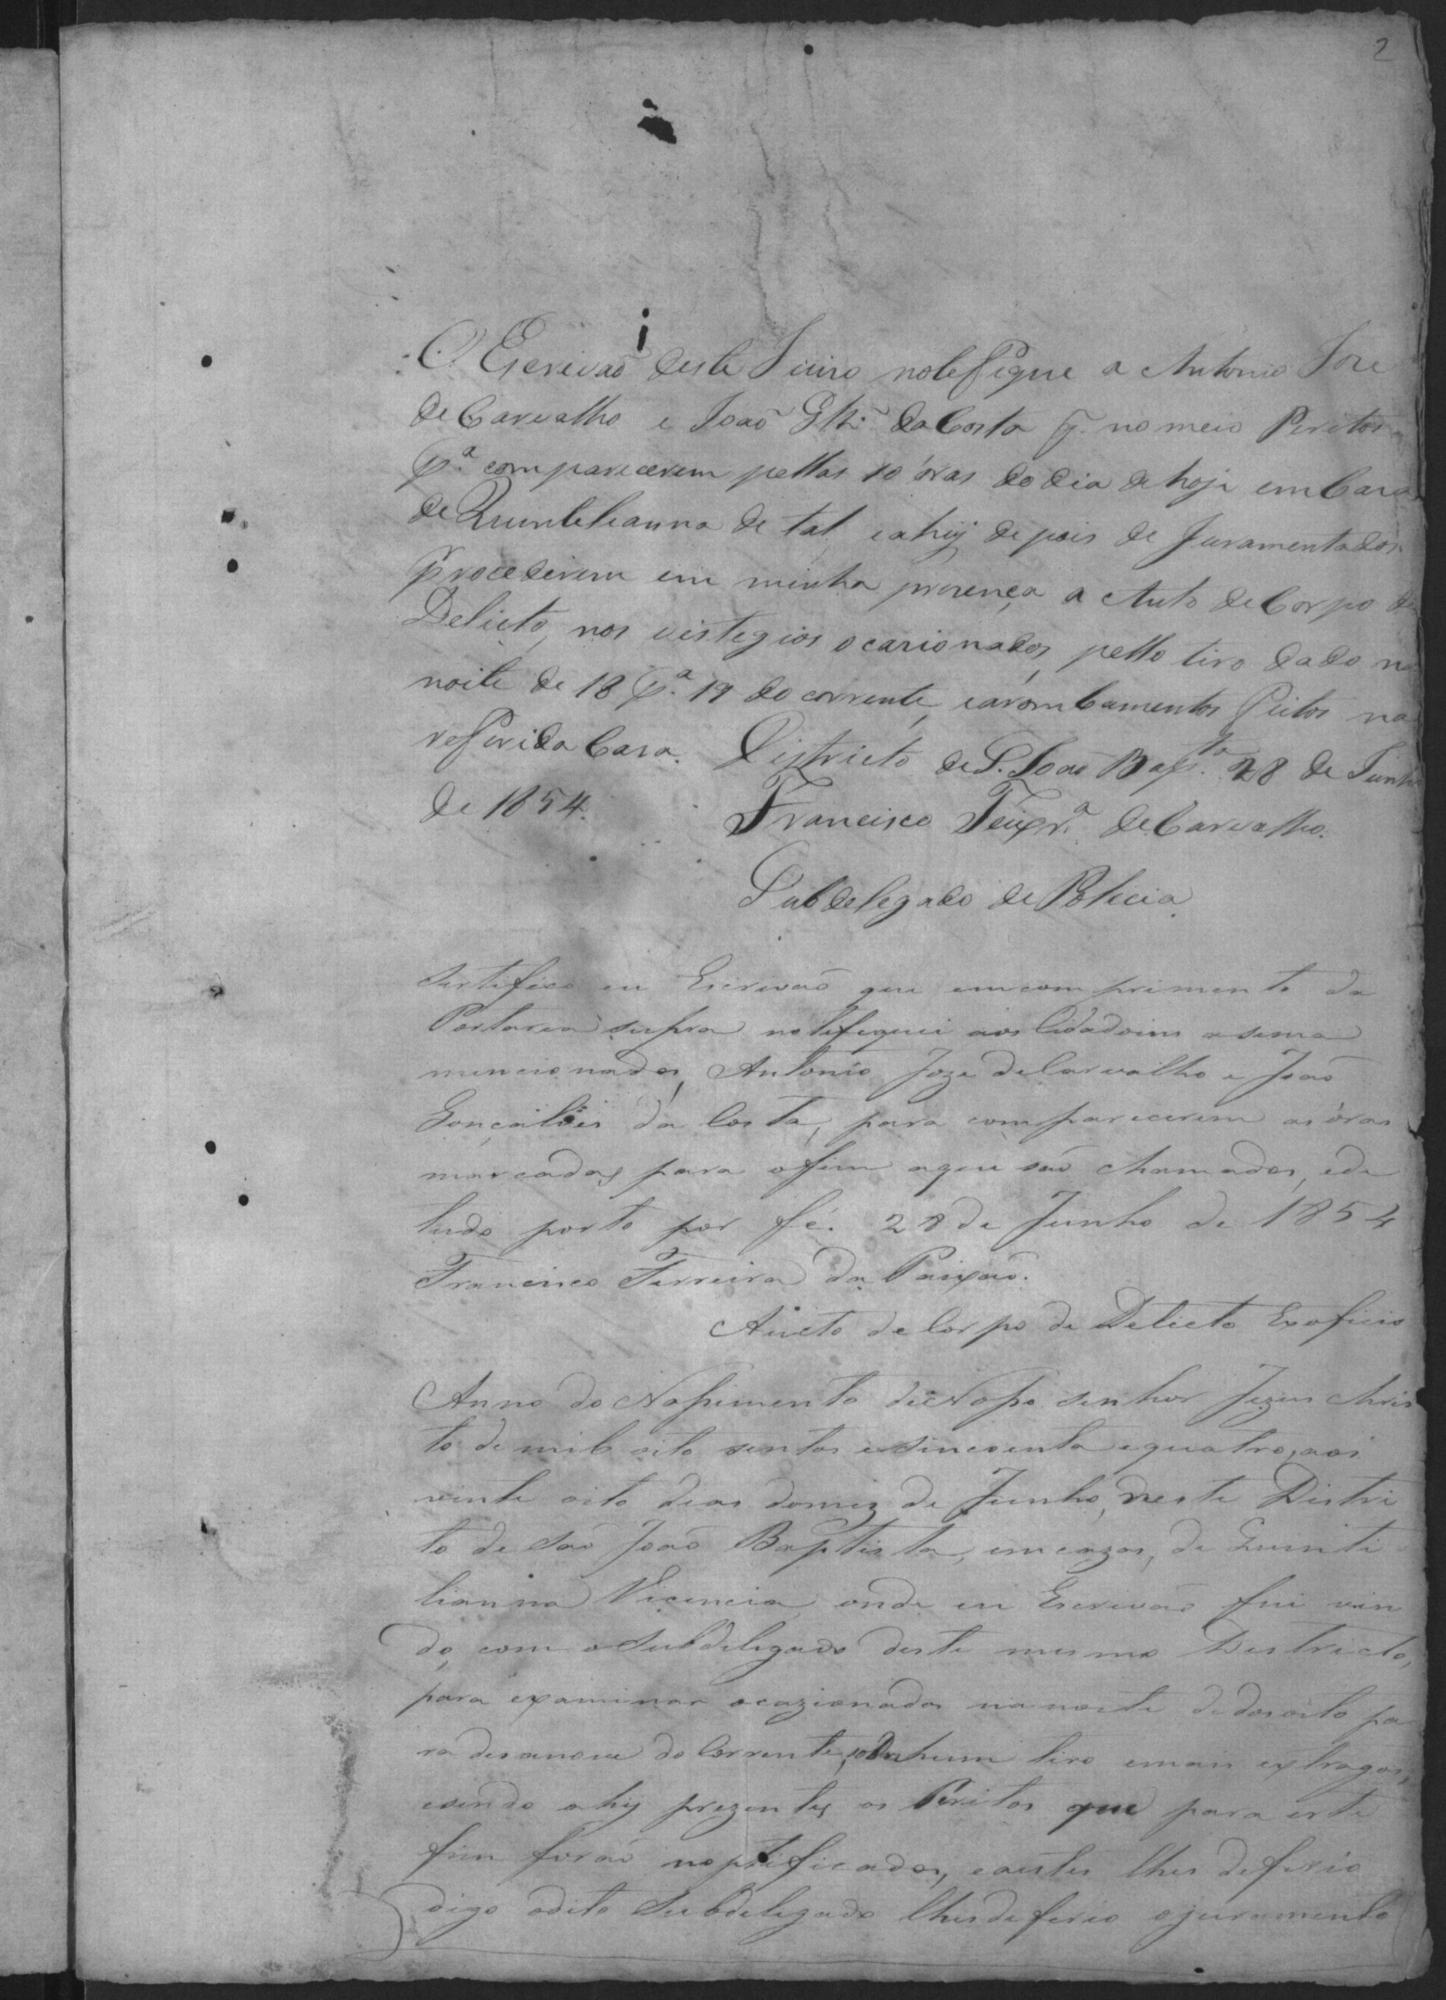 2
O Escrivaõ deste Juizo notefique a Antonio Jose
de Carvalho e Joaõ Glz. da Costa q. nomeio Peritos
p.a comparecerem pellas 10 óras do dia de hoje em Caza
de Quinteleanna de tal, e ahy depois de Juramentados
procederem em minha prezença a Auto de Corpo de
Delicto, nos vistegios ocazionados, pello tiro dado na
noite de 18 p.a 19 do corrente, e arombamentos feitos na
referida Caza. Districto de S. Joaõ Bap.ta 28 de Junho
de 1854. Francisco Teixr.a de Carvalho.
Subdelegado de Policia
Sertefico eu Escrivaõ que em comprimento da
Portarea supra notefiquei aos Cidadoins asima
mencionados, Antonio Joze de Carvalho e Joaõ
Gonçalves da Costa, para comparecerem as óras
marcadas, para o fim a que saõ chamados, e de
tudo porto por fé. 28 de Junho de 1854
Francisco Ferreira da Paixaõ.
Aucto de Corpo de Delicto Exoficio
Anno do Nassimento de Nosso senhor Jezus Chris
to de mil oito sentos e sincoenta e quatro, aos
vinte oito dias do mez de Junho, neste Distri
to de Saõ Joaõ Baptista, em cazas, de Quinti
lianna Vicencia, onde eu Escrivaõ fui vin
do, com o Subdelegado deste mesmo Destricto,
para examinar ocazionados na noite de dosoito pa
ra desanove do Corrente, de hum tiro e mais extragos,
e sendo ahy prezentes os Peritos que para este
fim foraõ noptificados, e a estes lhes deferio
digo o dito Subdelegado lhes deferio o juramento